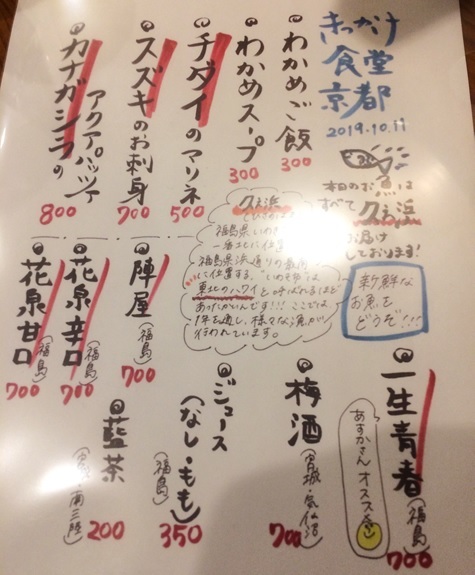 きっかけ
食堂
京都
2019.10.11
本日のお魚は
すべて久之浜
お届け
しております!
新鮮な
お魚を
どうぞ!!!
わかめご飯
300
わかめスープ
300
チダイのマリネ
500
スズキのお刺身
700
カナガシラの
アクアパッツァ
800
久之浜
福島県いわき
一番北に位置
福島県浜通りの
に位置する、"いわき市"は
東北のハワイと呼ばれるほど
あったかいんです!!!ここでは、
1年を通し、様々な漁が
行われています。
陣屋
(福島)
700
花泉辛口
(福島)
700
花泉甘口
(福島)
700
一生青春
(福島)
700
あすかさんオススメ
梅酒
(宮城・気仙沼)
700
ジュース
(なし・もも)
(福島)
350
藍茶
(宮城・南三陸)
200